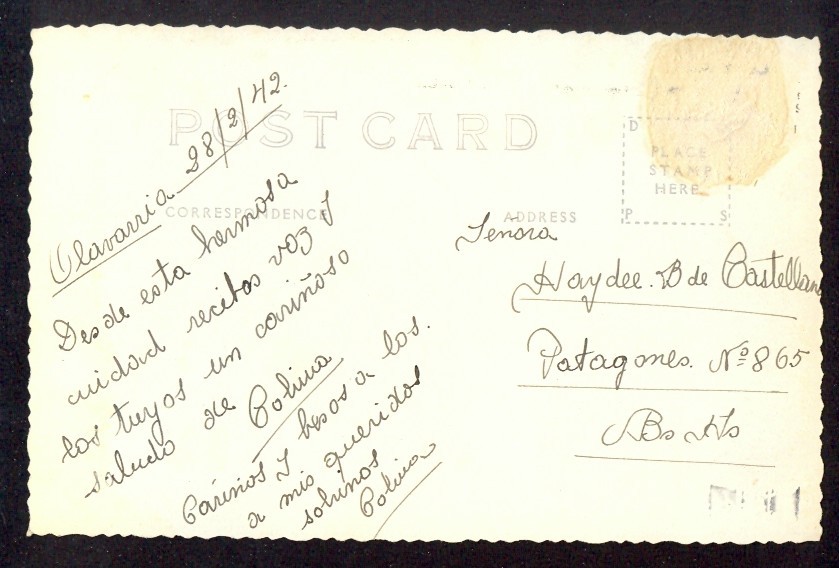 POST CARD
CORRESPONDENCE
ADDRESS
D
PLACE
STAMP
HERE
P S
Olavarria 28/2/42.
Desde esta hermosa
cuidad recibas voz y
los tuyos un cariñoso
saludo de Polina
Cariños y besos a los.
a mis queridos
sobinos
Polina
Señora
Haydee. B de Castellan
Patagones. Nº 865
Bs As